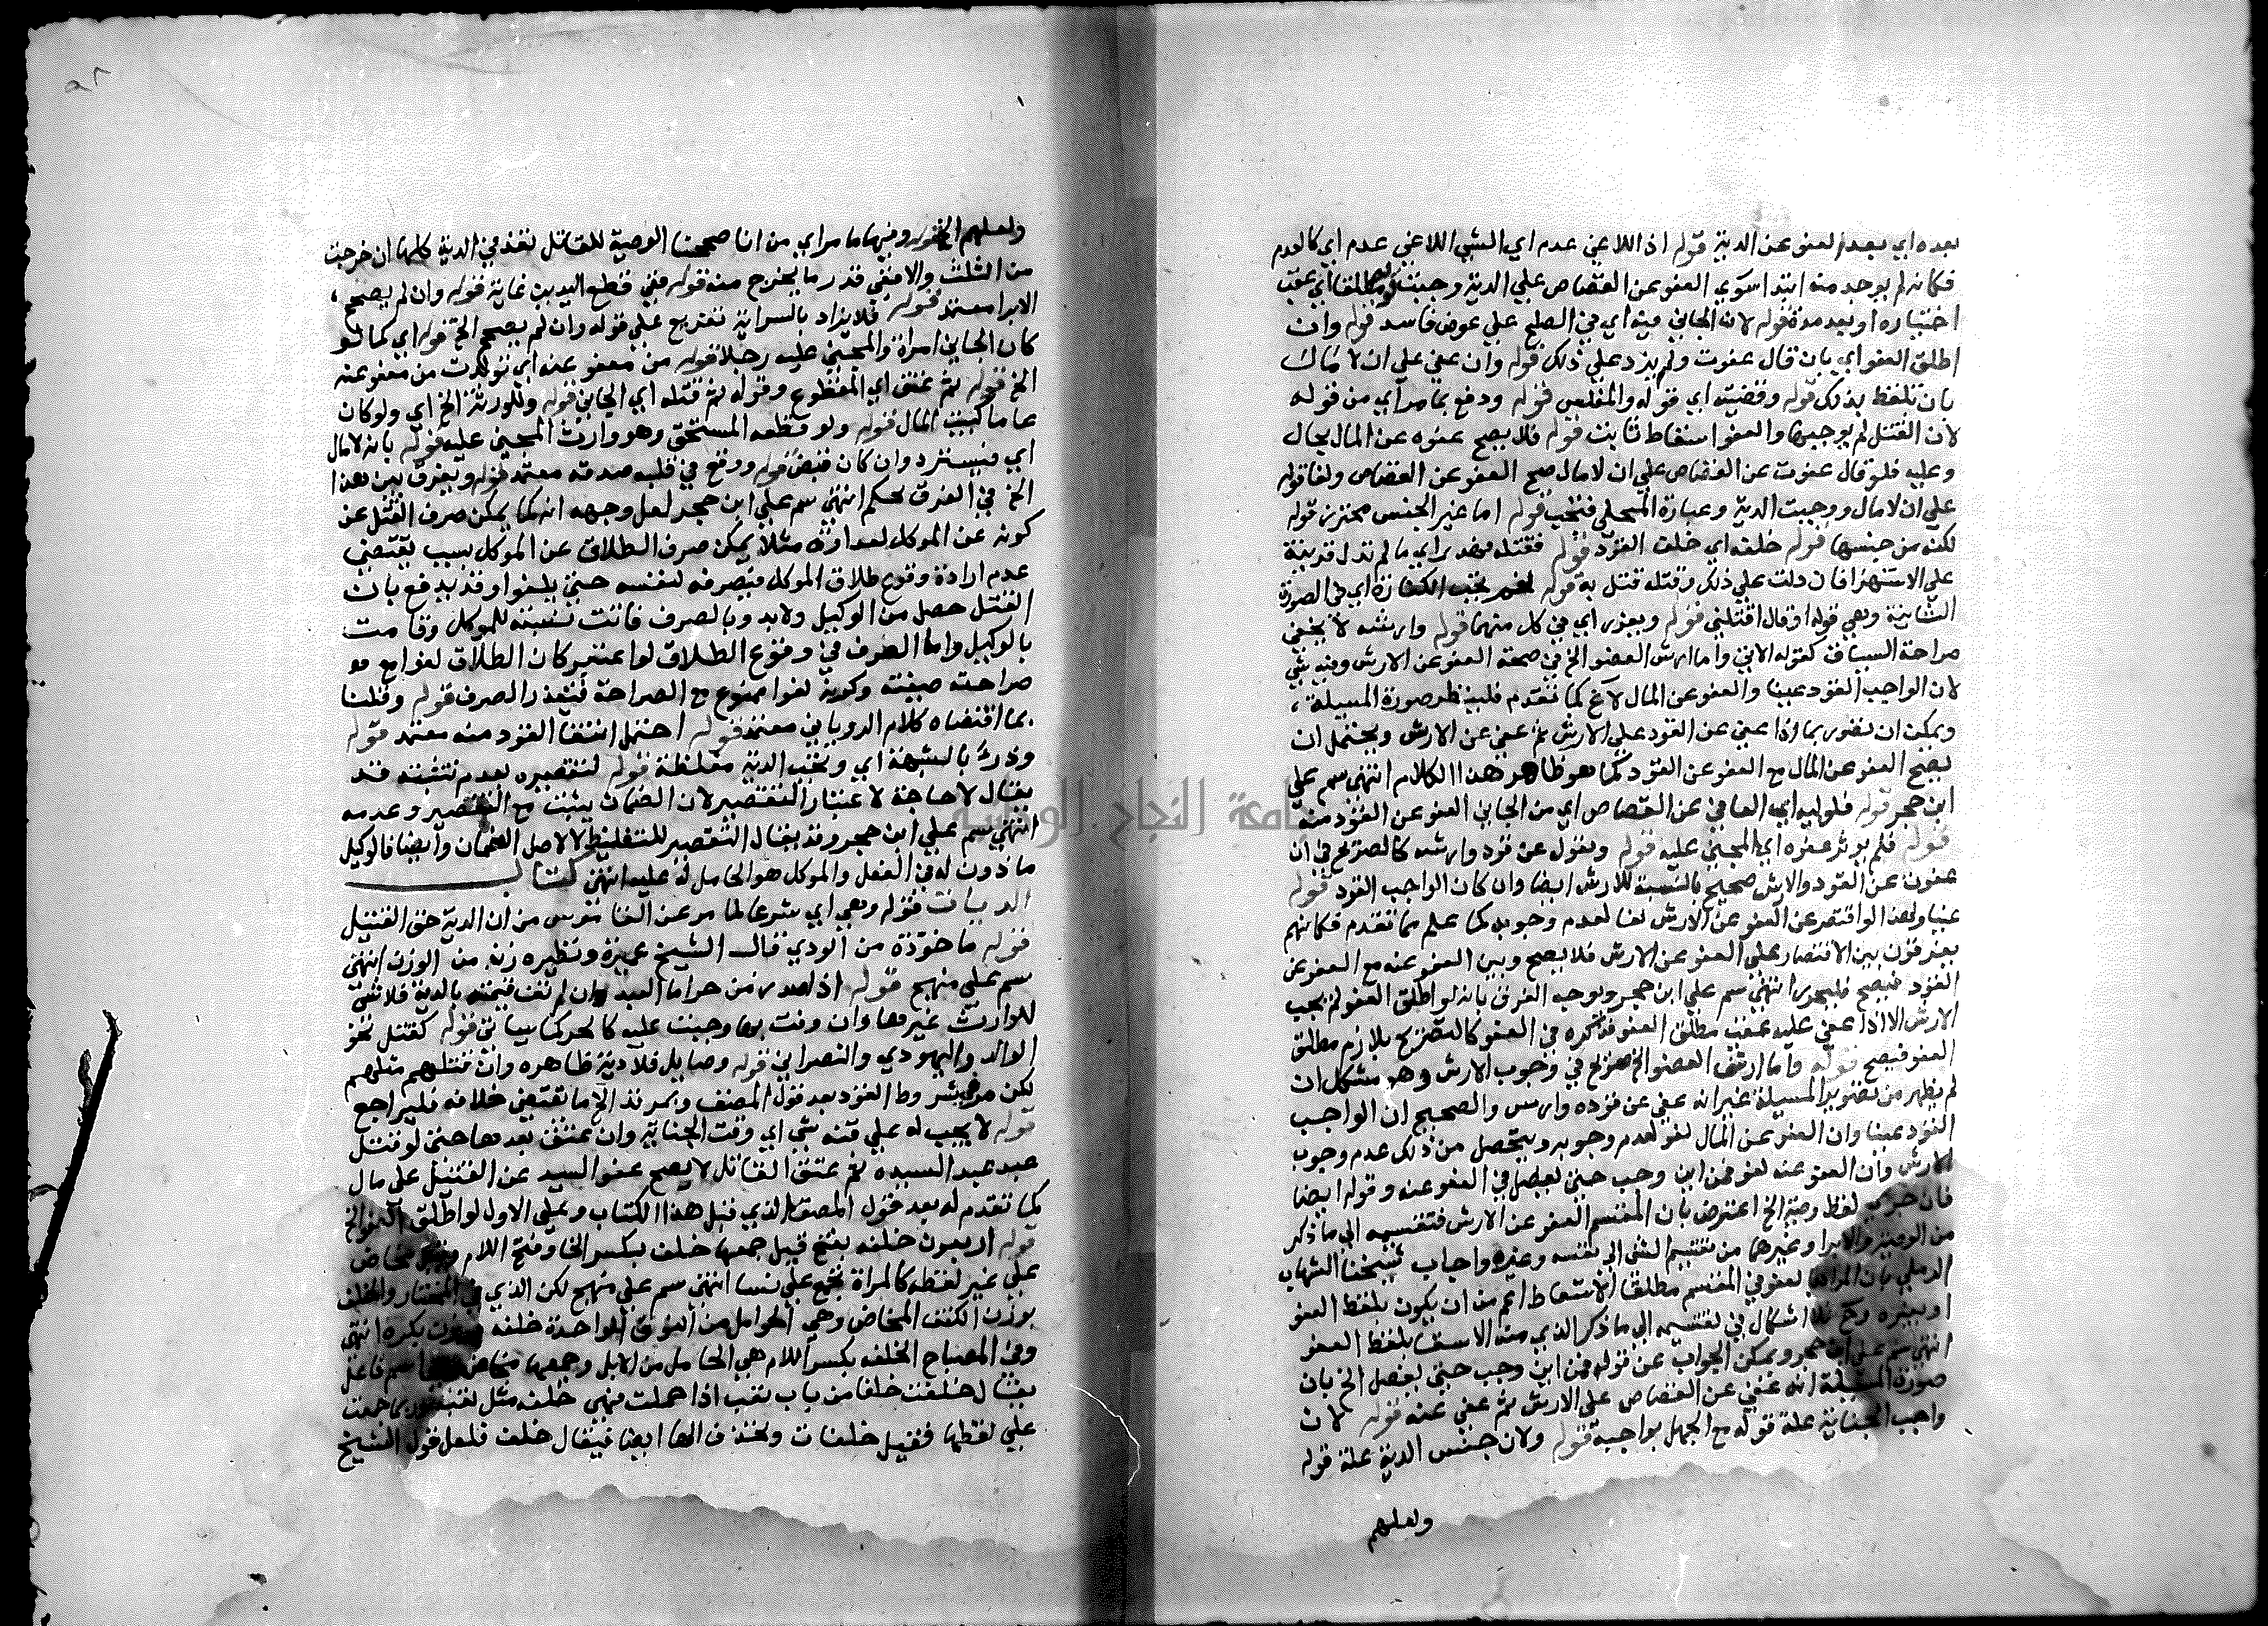 بعده اي بعد العفو عن الدية قوله اذ اللاغي عدم اي الشي اللاغي عدم اي كالعدم
فكانه لم يوجد منه ابتدا سوي العفو عن القصاص علي الدية وجبت اي عقب
اختياره او بعد مدة قوله لان الجاني فيه اي في الصلح علي عوض فاسد قوله وان
اطلق العفو اي بان قال عفوت ولم يزد علي ذلك قوله وان عفي علي ان لا مال
بان تلفظ بذلك قوله وقضيته اي قوله والمفلس قوله ودفع بما مر اي من قوله
لان القتل لم يوجبها والعفو اسقاط ثابت قوله فلا يصح عفوه عن المال بحال
وعليه فلو قال عفوت عن القصاص علي ان لا مال صح العفو عن القصاص ولغا قوله
علي ان لا مال ووجبت الدية وعبارة المحلي فتجب قوله اما غير الجنس محترز قوله
لكنه من جنسها قوله خلفه اي خلف القود قوله فقتله فهدر اي ما لم تدل قرينة
علي الاستهزا فان دلت علي ذلك وقتله قتل به قوله نعم يجب الكفارة اي في الصورة
الثانية وهي قوله او قال اقتلني قوله ويعزر اي في كل منهما قوله وارشه لا يخفي
صراحة السياق كقوله الاتي واما ارش العضو الخ في صحة العفو عن الارش وفيه شي
لان الواجب القود عينا والعفو عن المال لاغ كما تقدم فلينظر صورة المسيلة
ويمكن ان تصور بما اذا عفي عن القود علي الارش ثم عفي عن الارش ويحتمل ان
يصح العفو عن المال مع العفو عن القود كما هو ظاهر هذا الكلام انتهي سم علي
ابن حجر قوله فلوليه اي العافي عن القصاص اي من الجاني العفو عن القود منه
قوله فلم يوثر عفوه اي المجني عليه قوله ونقول عن قود وارشه كالصريح في ان
عفوت عن القود والارش صحيح بالنسبة للارش ايضا وان كان الواجب القود قوله
عينا ولهذا لو اقتصر عن العفو عن الارش لغا لعدم وجوبه كما علم مما تقدم فكانهم
يفرقون بين الاقتصار علي العفو عن الارش فلا يصح وبين العفو عنه مع العفو عن
القود فيصح فليحرر انتهي سم علي ابن حجر ويوجه الفرق بانه لو اطلق العفو لم يجب
الارش الا اذا عفي عليه عقب مطلق العفو فذكره في العفو كالتصريح بلازم مطلق
العفو فيصح قوله واما ارش العضو الخ صريح في وجوب الارش وهو مشكل ان
لم يظهر من تصوير المسيلة غير انه عفي عن قوده وارش والصحيح ان الواجب
القود عينا وان العفو عن المال لغو لعدم وجوبه ويتحصل من ذلك عدم وجوب
الارش وان العفو عنه لغو فمن اين وجب حتي يفصل في العفو عنه وقوله ايضا
فان جري لفظ وصية الخ اعترض بان المقسم العفو عن الارش فتقسيمه الي ما ذكر
من الوصية والابرا وغيرهما من تقسيم الشي الي نفسه وغيره واجاب شيخنا الشهاب
الرملي بان المراد بالعفو في المقسم مطلق الاسقاط اعم من ان يكون بلفظ العفو
او بغيره وح فلا اشكال في تقسيمه الي ما ذكر الذي منه الاسقاط بلفظ العفو
انتهي سم علي ابن حجر ويمكن الجواب عن قوله فمن اين وجب حتي يفصل الخ بان
صورة المسيلة انه عفي عن القصاص علي الارش ثم عفي عنه قوله لان
واجب الجناية علة قوله مع الجهل بواجبه قوله ولان جنس الدية علة قوله
ولعلهم
ولعلهم قوله وفيها ما مر اي من انا صححنا الوصية للقاتل نفذ في الدية كلها ان خرجت
من الثلث والا ففي قدر ما يخرج منه قوله ففي قطع اليد بين غاية قوله وان لم يصح
الابرا معتمد قوله فلا يزاد بالسراية تفريع علي قوله وان لم يصح الخ قوله اي كما لو
كان الجاني امراة والمجني عليه رجلا قوله من معفو عنه اي تولدت من معفو عنه
الخ قوله ثم عتق اي المقطوع وقوله ثم قتله اي الجاني قوله وللورثة الخ اي ولو كان
عاما كبيت المال قوله ولو قطعه المستحق وهو وارث المجني عليه قوله بانه لا مال
اي فيسترد وان كان قبض قوله ووقع في قلبه صدقه معتمد قوله ويفرق بين هذا
الخ في الفرق تحكم انتهي سم علي ابن حجر لعل وجهه انه كما يمكن صرف القتل عن
كونه عن الموكل لعداوة مثلا يمكن صرف الطلاق عن الموكل بسبب يقتضي
عدم ارادة وقوع طلاق الموكل فيصرفه لنفسه حتي يلغو وقد يدفع بان
القتل حصل من الوكيل ولا بد وبالصرف فاتت نسبته للموكل وقامت
بالوكيل واما الصرف في وقوع الطلاق لو اعتبر كان الطلاق لغوا مع
صراحة صيغته وكونه لغوا ممنوع مع الصراحة فتعذر الصرف قوله وقلنا
بما اقتضاه كلام الروياني معتمد قوله احتمل انتفا القود منه معتمد قوله
ودرئ بالشبهة اي وتجب الدية مغلظة قوله لتقصيره بعدم تثبته قد
يقال لا حاجة لاعتبار التقصير لان الضمان يثبت مع التقصير وعدمه
انتهي سم علي ابن حجر وقد يقال التقصير للتغليظ لا لاصل الضمان وايضا فالوكيل
ماذون له في الفعل والموكل هو الحامل له عليه انتهي كتاب
الديات قوله وهي اي شرعا لما مر عن من ان الدية حق القتيل
قوله ماخوذة من الودي قال الشيخ عميرة ونظيره زنة من الوزن انتهي
سم علي منهج قوله اذا صدر من حر اما العبد وان لم تف قيمته بالدية فلا شي
للوارث غيرها وان وفت بها وجبت عليه كالحر كما سياتي قوله كقتل نحو
الوالد واليهودي والنصراني قوله وصايل فلا دية ظاهره وان قتلهم مثلهم
لكن مر في شروط القود بعد قول المصنف ومرتد الخ ما يقتضي خلافه فليراجع
قوله لا يجب له علي قنه شي اي وقت الجناية وان عتق بعدها حتي لو قتل
عبد عبد السيده ثم عتق القاتل لا يصح عفو السيد عن القتل علي مال
كما تقدم له بعد قول المصنف الذي قبل هذا الكتاب وعلي الاول لو اطلق العفو الخ
قوله اربعون خلفه بفتح قيل جمعها خلف بكسر الخا وفتح اللام مخاض
علي غير لفظه كالمراة تجمع علي نسا انتهي سم علي منهج لكن الذي في المختار والخلف
بوزن الكتف المخاض وهي الحوامل من النوق الواحدة خلفه بوزن نكره انتهي
وفي المصباح الخلفه بكسر اللام هي الحامل من الابل وجمعها مخاض اسم فاعل
يقال خلفت خلفا من باب تعب اذا حملت فهي خلفه مثل تعبه وربما جمعت
علي لفظها فقيل خلفات وتحذف الها ايضا فيقال خلف فلعل قول الشيخ